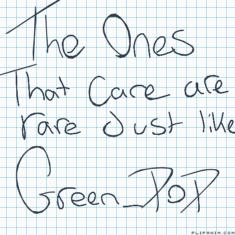 The Ones
That Care are
rare Just like
Green_PoP
FLIPANIM.COM